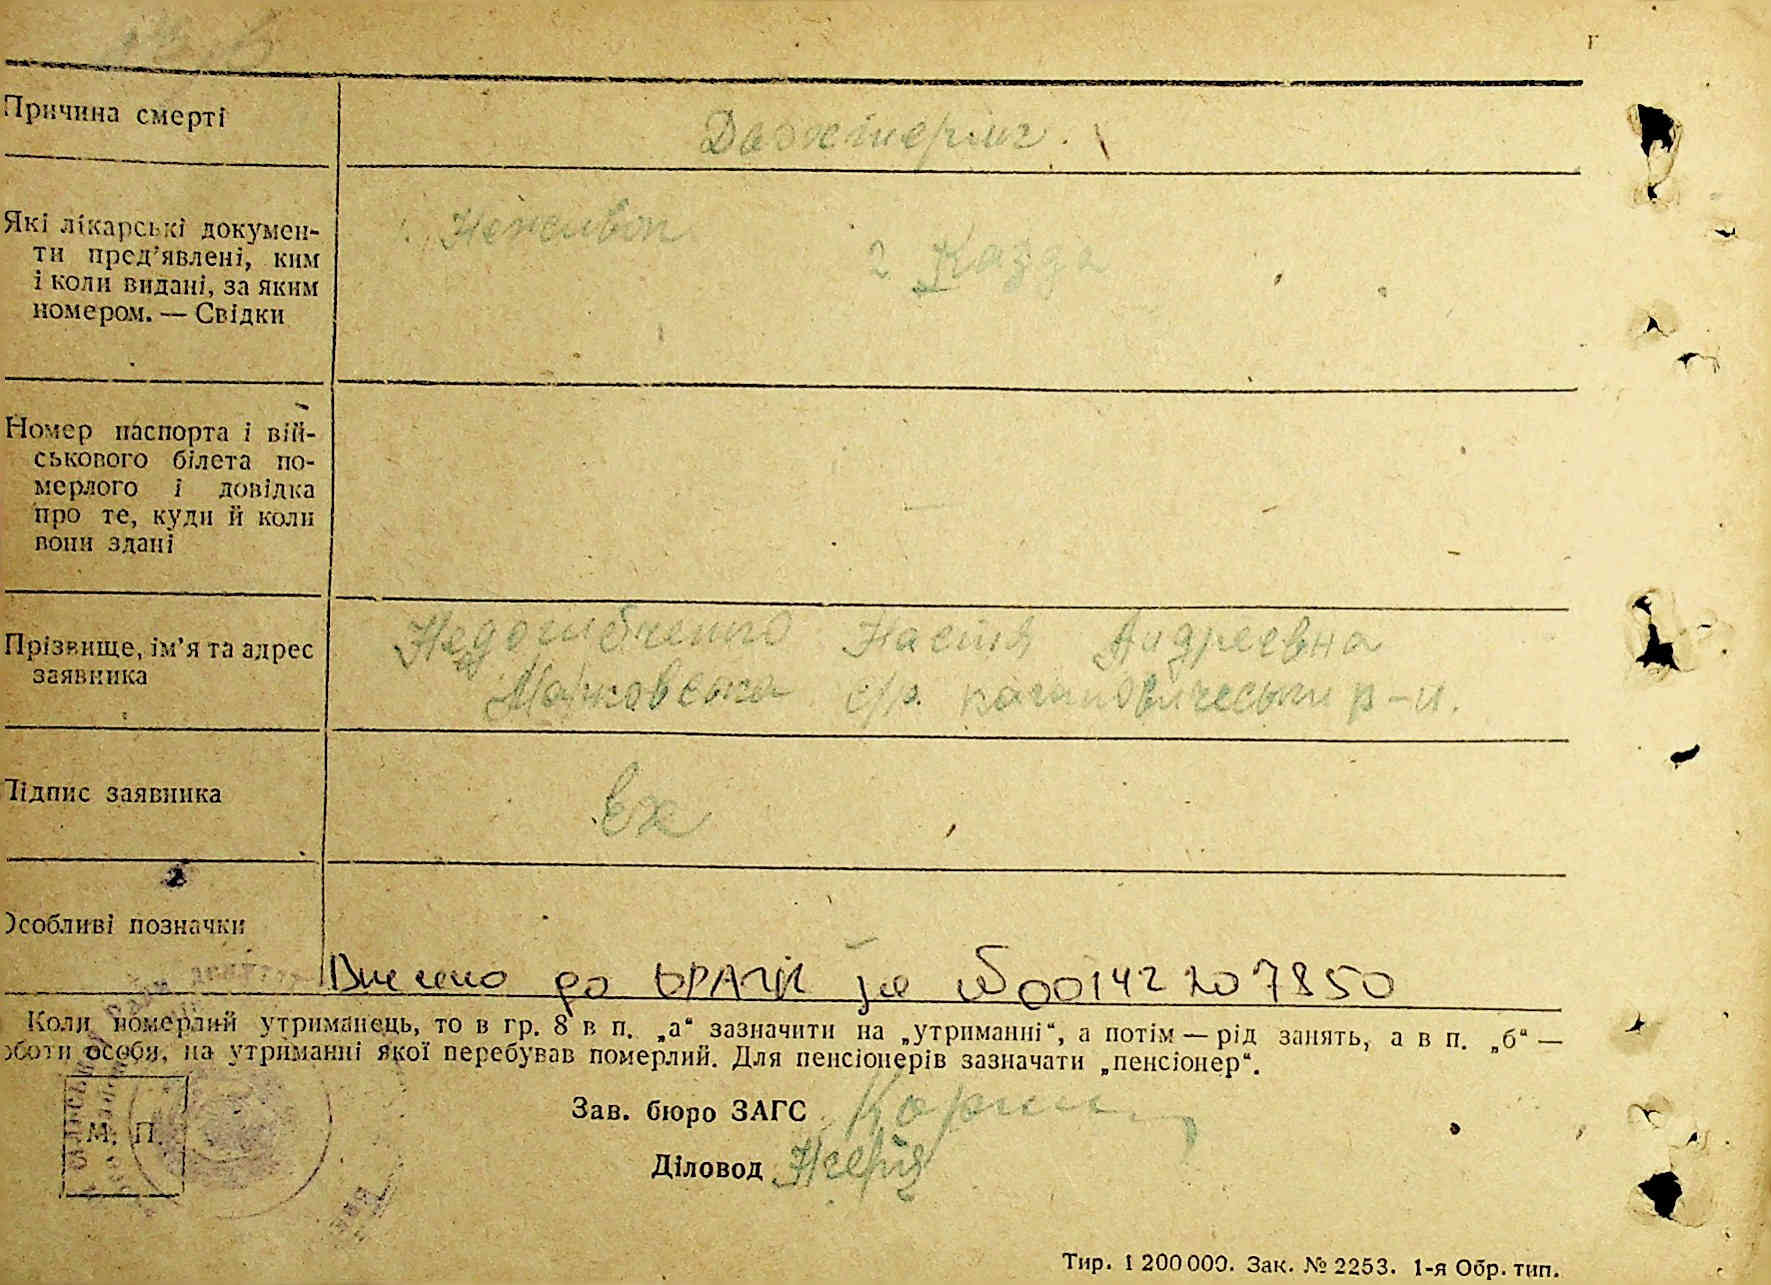 Причина смерті
Які лікарські докумен-
ти пред’явлені, ким
і коли видані, за яким
номером. — Свідки
1. Неживоп
2 Казда
Номер паспорта і вій-
ськового білета по-
мерлого і довідка
про те, куди й коли
вони здані
Прізвище, ім’я та адрес
заявника
Настя Андреевна
Марковська с/р. р-н.
Підпис заявника
Особливі позначки
Внесено до ДРАЦС за №00142207850
Коли померлий утриманець, то в гр. 8 в п. „а“ зазначити на „утриманні“, а потім — рід занять, а в п. „б“ —
оботи особи, на утриманні якої перебував померлий. Для пенсіонерів зазначати „пенсіонер“.
М. П.
Зав. бюро ЗАГС
Діловод
Тир. 1 200 000. Зак. № 2253. 1-я Обр. тип.